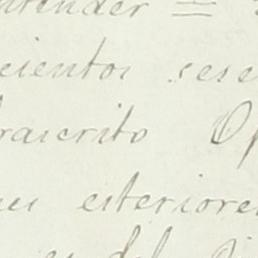 ntender =
cientos sese
rascrito Op
nes esteriores
es del